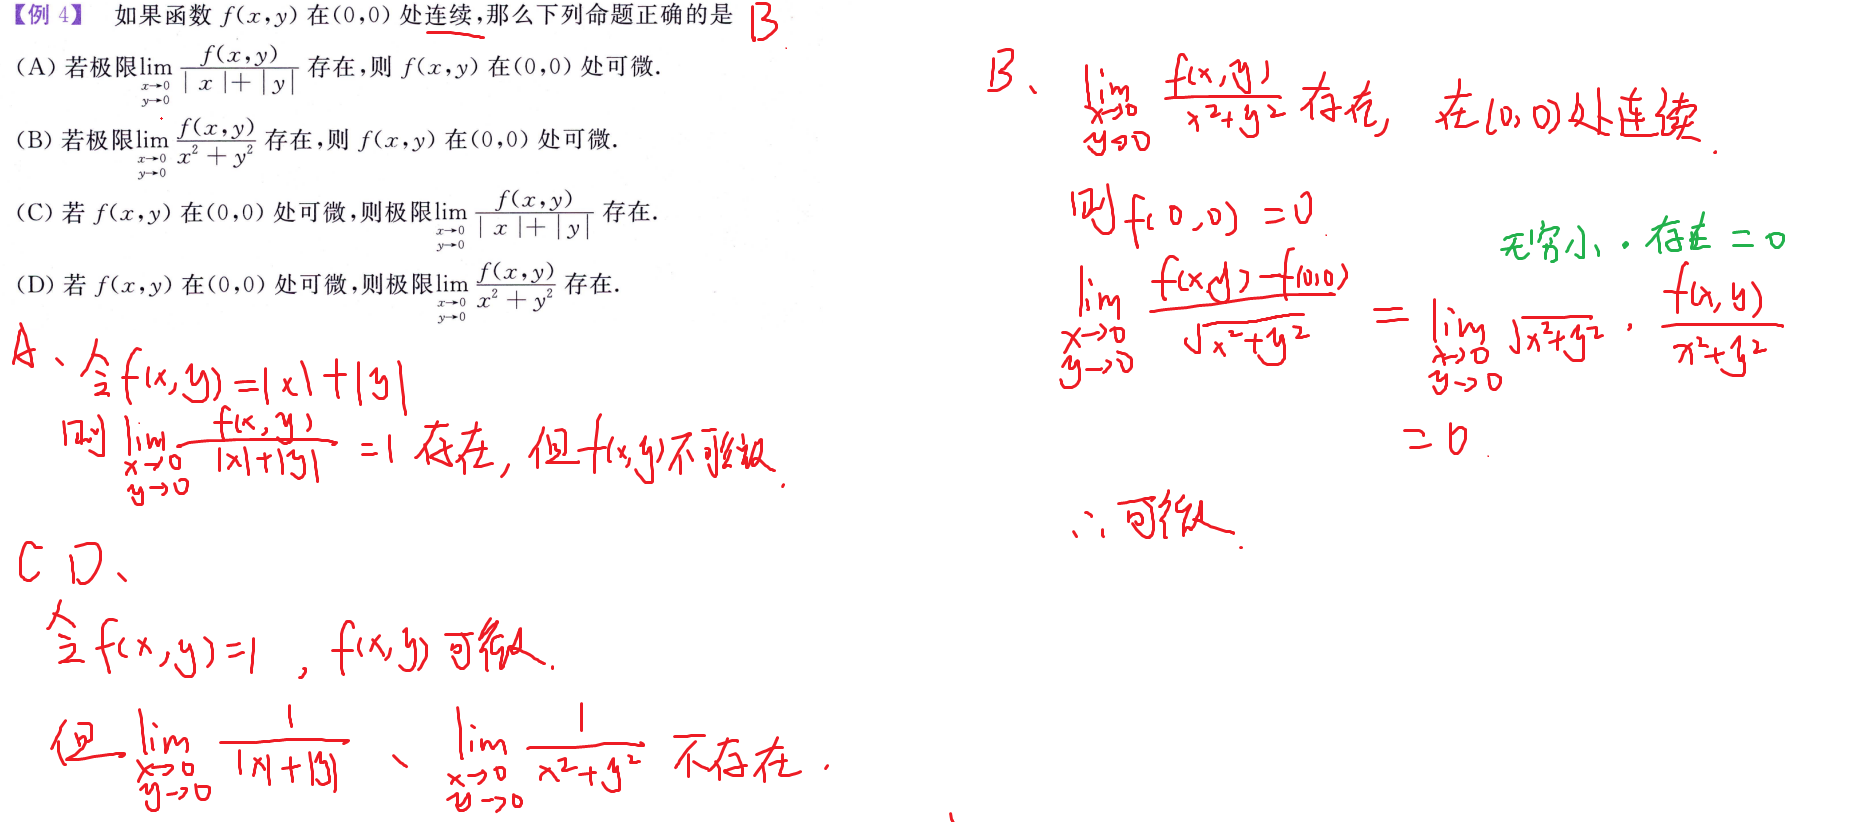 【例 4】 如果函数 f(x,y) 在(0,0) 处连续,那么下列命题正确的是 B
(A) 若极限lim_{x→0, y→0} f(x,y)/(|x|+|y|) 存在,则 f(x,y) 在(0,0) 处可微.
(B) 若极限lim_{x→0, y→0} f(x,y)/(x²+y²) 存在,则 f(x,y) 在(0,0) 处可微.
(C) 若 f(x,y) 在(0,0) 处可微,则极限lim_{x→0, y→0} f(x,y)/(|x|+|y|) 存在.
(D) 若 f(x,y) 在(0,0) 处可微,则极限lim_{x→0, y→0} f(x,y)/(x²+y²) 存在.
A、令f(x,y)=|x|+|y|
则 lim_{x→0, y→0} f(x,y)/(|x|+|y|) =1 存在, 但f(x,y)不可微.
C D、
令 f(x,y)=1 , f(x,y) 可微.
但 lim_{x→0, y→0} 1/(|x|+|y|) 、 lim_{x→0, y→0} 1/(x²+y²) 不存在.
B、 lim_{x→0, y→0} f(x,y)/(x²+y²) 存在, 在(0,0)处连续.
则f(0,0)=0
无穷小·存在=0
lim_{x→0, y→0} (f(x,y)-f(0,0))/√(x²+y²) = lim_{x→0, y→0} √(x²+y²) · f(x,y)/(x²+y²)
=0.
∴可微.